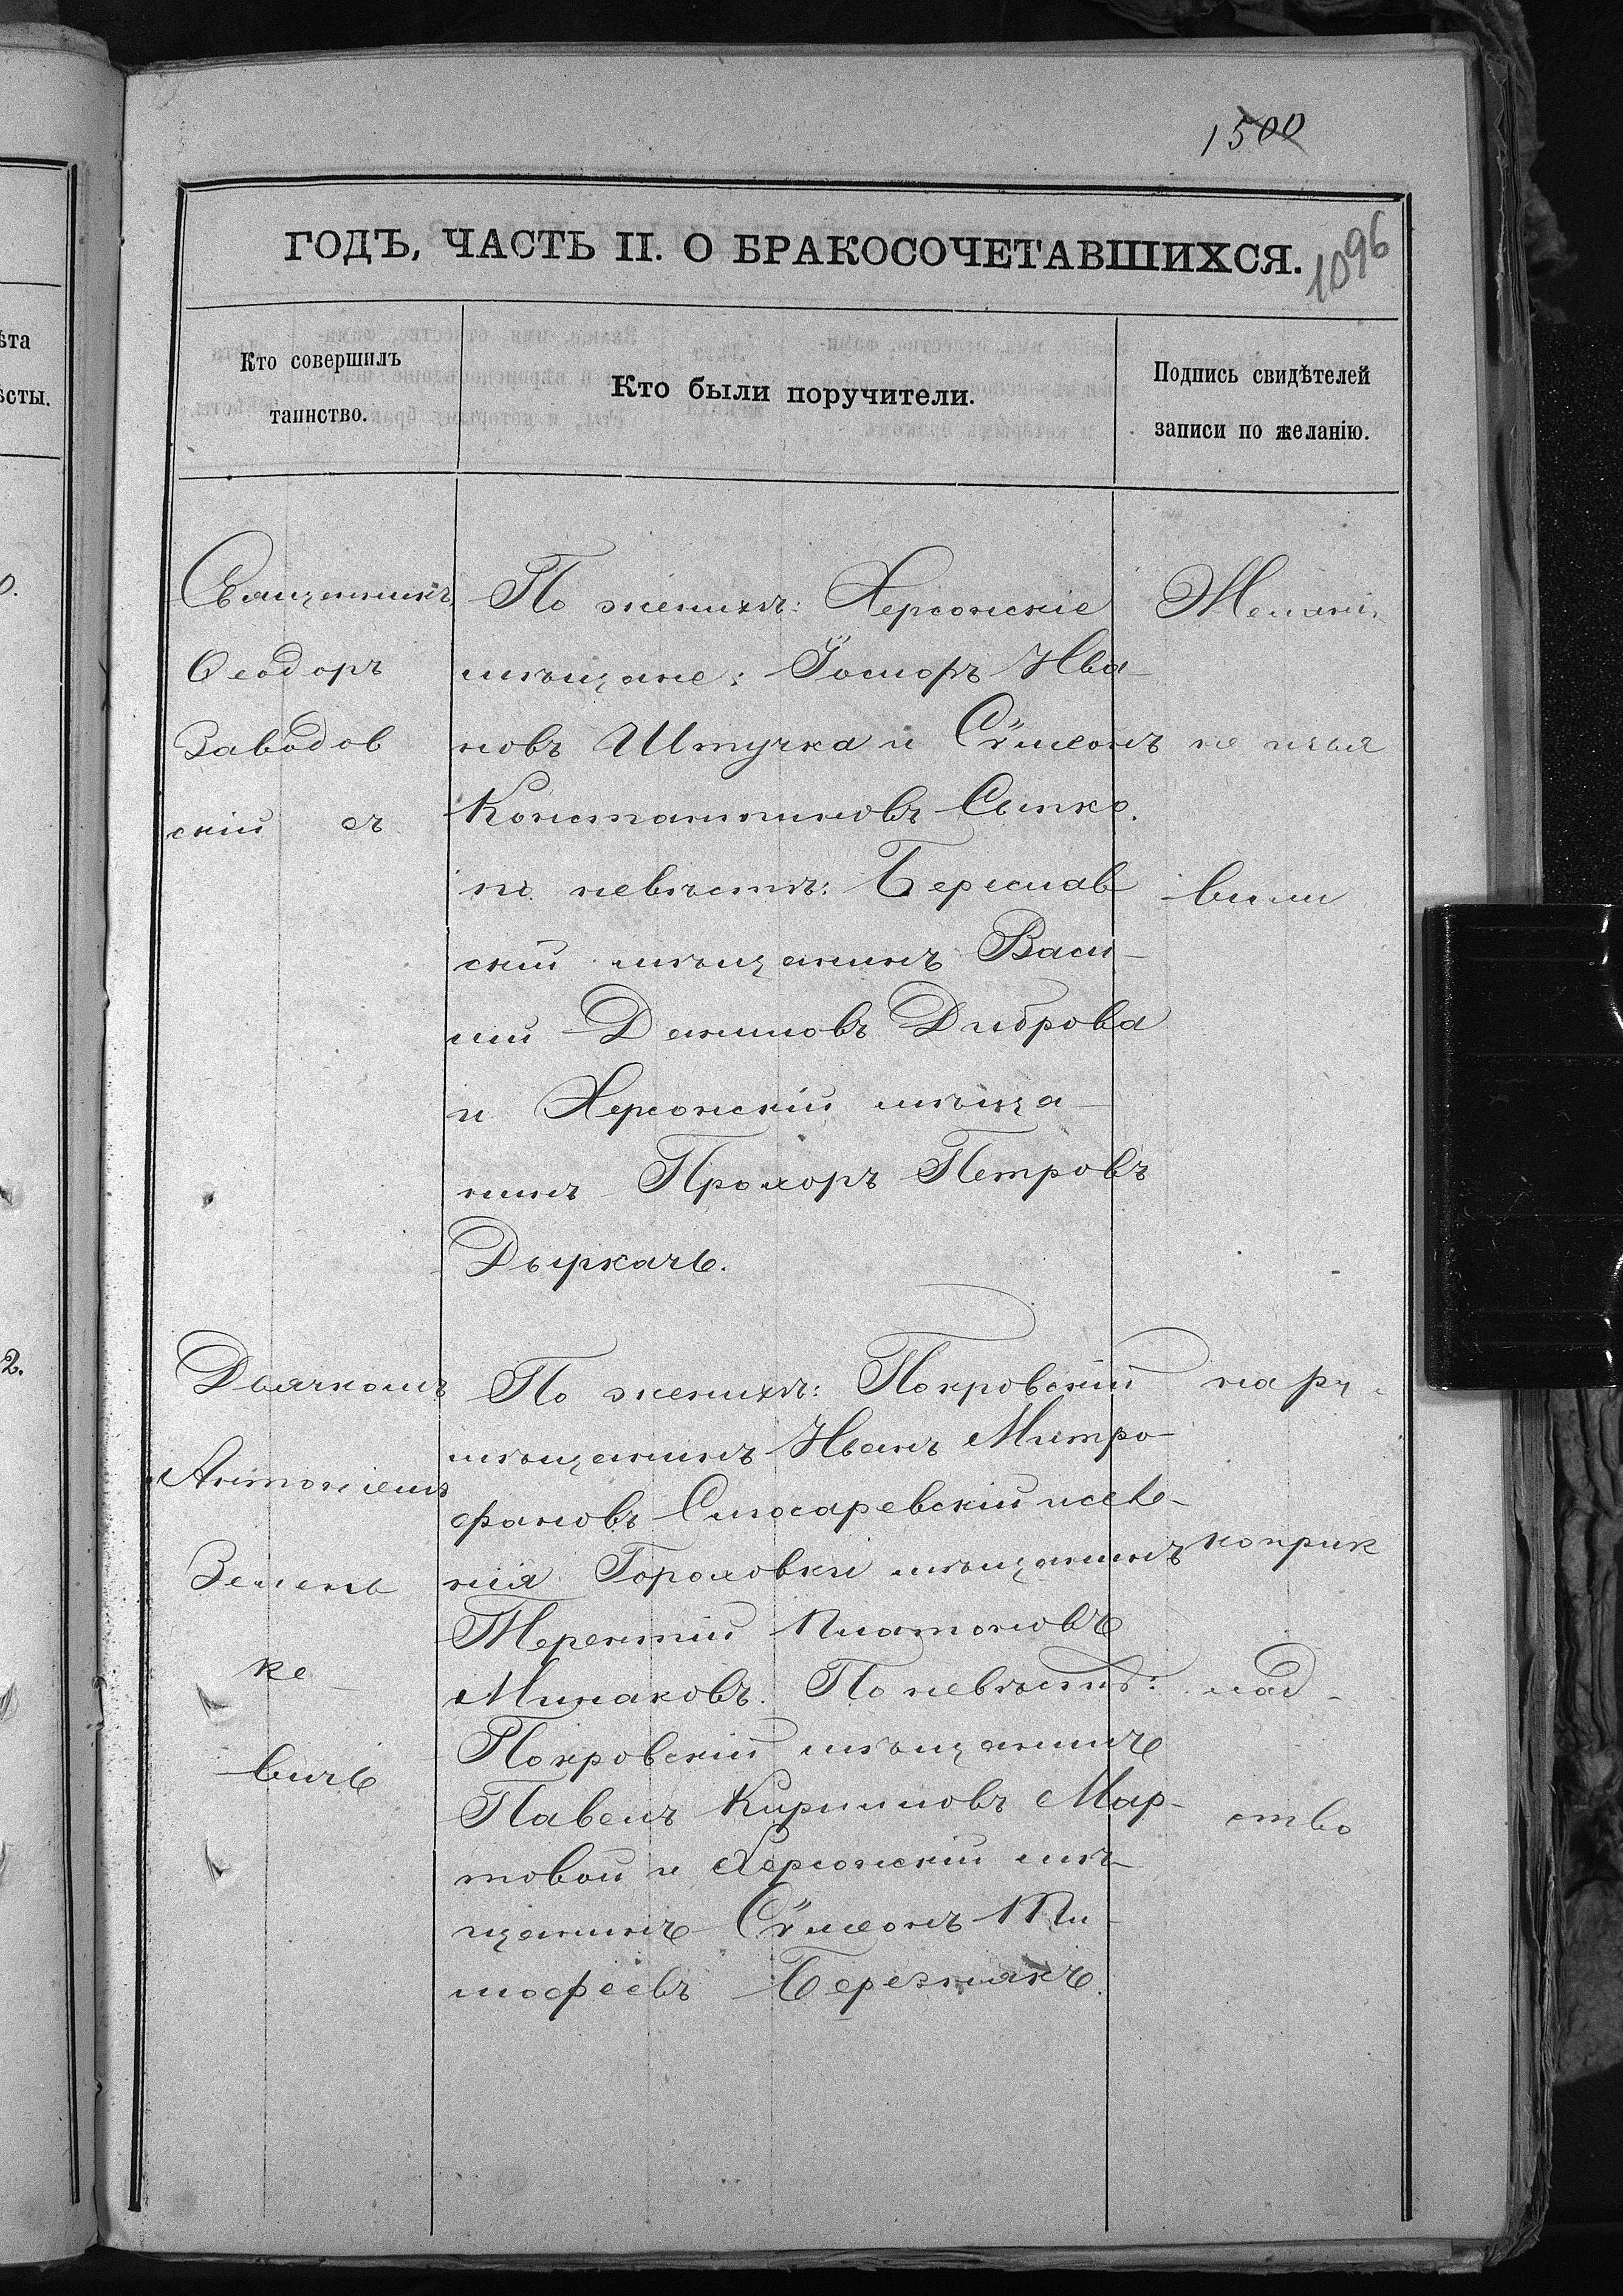 1500
ГОДЪ, ЧАСТЬ II. О БРАКОСОЧЕТАВШИХСЯ.
1096
Кто совершилъ
таинство.
Кто были поручители.
Подпись свидѣтелей
записи по желанію.
ѣта
ѣсты.
2.
Священникъ
Ѳеодоръ
Заводов
скій съ
Дьячкомъ
Антоніемъ
Зелень
ке
вичь
По женихѣ: Херсонскіе
мѣщане: Іосифъ Ива-
новъ Штучка и Сѵмеонъ
Константиновъ Сыпко.
по невѣстѣ: Береслав
скій мѣщанинъ Васи-
лій Даниловъ Диброва
и Херсонскій мѣща-
нинъ Прохоръ Петровъ
Дыркачь.
По женихѣ: Покровскій
мѣщанинъ Иванъ Митро-
фановъ Слюсаревскій и селе-
нія Гороховки мѣщанинъ
Терентій Платоновъ
Минаковъ. По невѣстѣ:
Покровскій мѣщанинъ
Павелъ Кирилловъ Мар-
товой и Херсонскій мѣ-
щанинъ Сѵмеонъ Ти-
мофеевъ Березнякъ.
не изъя
вили